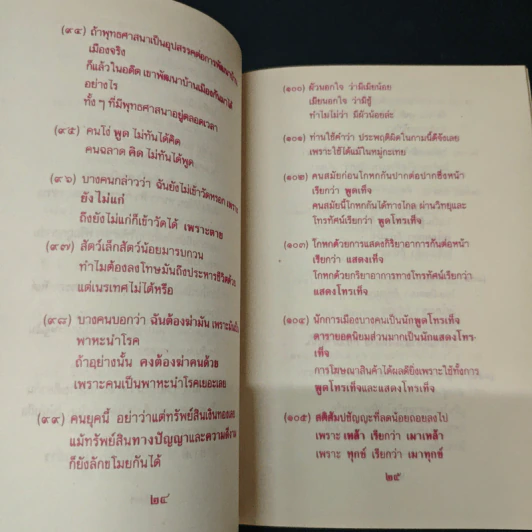 (๙๔) ถ้าพุทธศาสนาเป็นอุปสรรคต่อการพัฒนาบ้าน
เมืองจริง
ก็แล้วในอดีต เขาพัฒนาบ้านเมืองกันมาได้
อย่างไร
ทั้ง ๆ ที่มีพุทธศาสนาอยู่ตลอดเวลา
(๙๕) คนโง่ พูด ไม่ทันได้คิด
คนฉลาด คิด ไม่ทันได้พูด
(๙๖) บางคนกล่าวว่า ฉันยังไม่เข้าวัดหรอก เพราะ
ยัง ไม่แก่
ถึงยังไม่แก่ก็เข้าวัดได้ เพราะตาย
(๙๗) สัตว์เล็กสัตว์น้อยมารบกวน
ทำไมต้องลงโทษมันถึงประหารชีวิตด้วย
แต่เนรเทศไม่ได้หรือ
(๙๘) บางคนบอกว่า ฉันต้องฆ่ามัน เพราะมันเป็น
พาหะนำโรค
ถ้าอย่างนั้น คงต้องฆ่าคนด้วย
เพราะคนเป็นพาหะนำโรคเยอะเลย
(๙๙) คนยุคนี้ อย่าว่าแต่ทรัพย์สินเงินทองเลย
แม้ทรัพย์สินทางปัญญาและความดีงาม
ก็ยังลักขโมยกันได้
๒๔
(๑๐๐) ผัวนอกใจ ว่ามีเมียน้อย
เมียนอกใจ ว่ามีชู้
ทำไมไม่ว่า มีผัวน้อยล่ะ
(๑๐๑) ท่านใช้คำว่า ประพฤติผิดในกามนี้ดีจังเลย
เพราะใช้ได้แม้ในหมู่กะเทย
(๑๐๒) คนสมัยก่อนโกหกกันปากต่อปากซึ่งหน้า
เรียกว่า พูดเท็จ
คนสมัยนี้โกหกกันได้ทางไกล ผ่านวิทยุและ
โทรทัศน์เรียกว่า พูดโทรเท็จ
(๑๐๓) โกหกด้วยการแสดงกิริยาอาการกันต่อหน้า
เรียกว่า แสดงเท็จ
โกหกด้วยกริยาอาการทางโทรทัศน์เรียกว่า
แสดงโทรเท็จ
(๑๐๔) นักการเมืองบางคนเป็นนักพูดโทรเท็จ
ดารายอดนิยมส่วนมากเป็นนักแสดงโทร-
เท็จ
การโฆษณาสินค้าได้ผลดียิ่งเพราะใช้ทั้งการ
พูดโทรเท็จและแสดงโทรเท็จ
(๑๐๕) สติสัมปชัญญะที่ลดน้อยถอยลงไป
เพราะ เหล้า เรียกว่า เมาเหล้า
เพราะ ทุกข์ เรียกว่า เมาทุกข์
๒๕